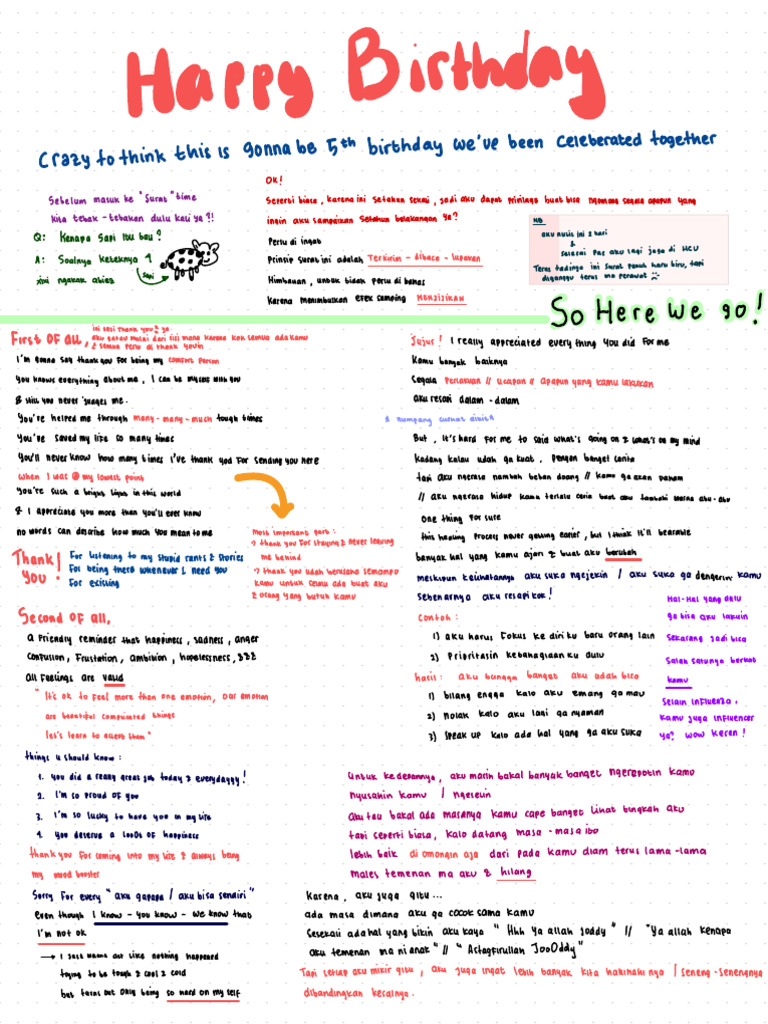 Happy Birthday
Crazy to think this is gonna be 5th birthday we've been celeberated together
Sebelum masuk ke "Surat" time
kita tebak-tebakan dulu kali ya?!
Q: Kenapa Sapi ibu bau?
A: Soalnya keteknya 4
sapi
xixi ngakak abiez
OK!
Seperti biasa, karena ini setahun sekali, jadi aku dapat privilage buat bisa ngomong segala apapun yang
ingin aku sampaikan setahun belakangan ya?
Perlu di ingat
Prinsip surat ini adalah Terkirim - dibaca - lupakan
Himbauan, untuk tidak perlu di bahas
Karena menimbulkan efek samping MENJIJIKAN
NB
aku nulis ini 2 hari
&
selesai Pas aku lagi jaga di HCU
Terus tadinya ini surat penuh haru biru, tapi
diganggu terus ma perawat :(
So Here We go!
First Of all,
ini sesi thank you 2 ya
aku gatau mulai dari sisi mana karena kok semua ada kamu
& semua perlu di thank youin
I'm gonna say thank you for being my comfort person
You knows everything about me, I can be myself with you
& still you never judges me.
You're helped me through many-many-much tough times
You've saved my life so many times
You'll never know how many times I've thank god for sending you here
when I was @ my lowest point
You're such a bright light in this world
& I appreciate you more than you'll ever know
no words can describe how much you mean to me
Thank You!
For listening to my stupid rants & stories
For being there whenever I need you
For existing
Most important part:
→ thank you for staying & never leaving
me behind
→ thank you udah berusaha semampu
kamu untuk selalu ada buat aku
& orang yang butuh kamu
Second of all,
a friendly reminder that happiness, sadness, anger
Confusion, Frustation, ambition, hopelessness, &&&
all feelings are valid
"It's ok to feel more than one emotion, our emotion
are beautiful complicated things
let's learn to accept them"
things u should know:
1. you did a really great job today & everydayyy!
2. I'm so proud of you
3. I'm so lucky to have you in my life
4. you deserve a loads of happiness
thank you for coming into my life & always being
my mood booster
Sorry for every "aku gapapa / aku bisa sendiri"
even though I know - you know - we know that
I'm not ok
→ I just wanna act like nothing happened
trying to be tough & cool & cold
but turns out only being so hard on my self
Jujur! I really appreciated everything you did for me
Kamu banyak baiknya
Segala Perlakuan // ucapan // apapun yang kamu lakukan
aku resapi dalam-dalam
* numpang curhat dikit *
But, it's hard for me to said what's going on & what's on my mind
kadang kalau udah ga kuat, pengen banget cerita
tapi aku ngerasa nambah beban doang // kamu ga akan paham
// aku ngerasa hidup kamu terlalu ceria buat aku tambahi warna abu-abu
One thing for sure
this healing process never getting easier, but I think it'll bearable
banyak hal yang kamu ajari & buat aku berubah
meskipun kelihatannya aku suka ngejekin / aku suka ga dengerin kamu
sebenarnya aku resapi kok!
Contoh:
1) aku harus fokus ke diriku baru orang lain
2) Prioritasin kebahagiaan ku dulu
hasil: aku bangga banget aku udah bisa
1) bilang engga kalo aku emang ga mau
2) nolak kalo aku lagi ga nyaman
3) Speak up kalo ada hal yang ga aku suka
Hal-Hal yang dulu
ga bisa aku lakuin
Sekarang Jadi bisa
Salah satunya berkat
kamu
Selain influenza,
kamu juga influencer
ya? WOW keren!
Untuk kedepannya, aku masih bakal banyak banget ngerepotin kamu
nyusahin kamu / ngeselin
aku tau bakal ada masanya kamu cape banget lihat tingkah aku
tapi seperti biasa, kalo datang masa-masa itu
lebih baik di omongin aja dari pada kamu diam terus lama-lama
males temenan ma aku & hilang
Karena, aku juga gitu...
ada masa dimana aku ga cocok sama kamu
Sesekali ada hal yang bikin aku kaya "Hhh Ya allah Joddy" // "Ya allah kenapa
aku temenan ma ni anak" // "Astagfirullah JooOddy"
Tapi setiap aku mikir gitu, aku juga ingat lebih banyak kita hahahahi nya / seneng-senengnya
dibandingkan keselnya.